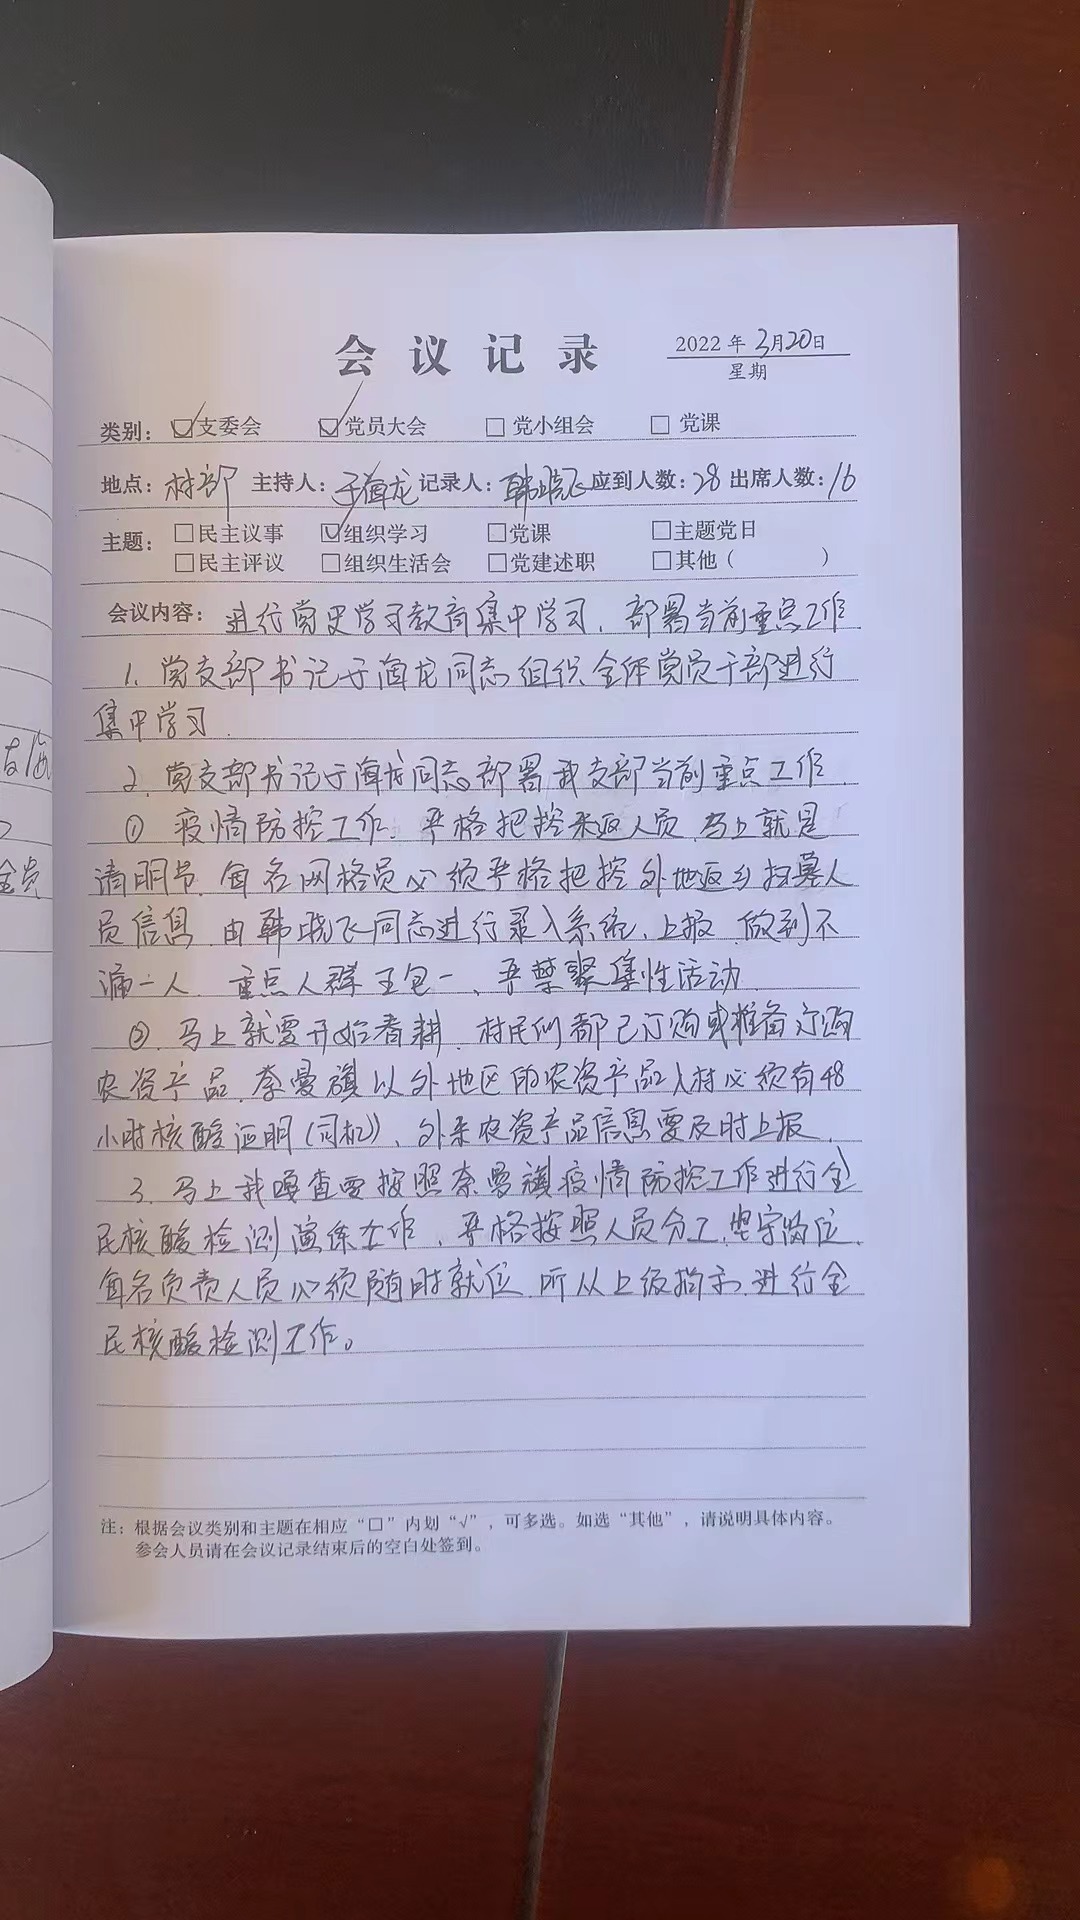 会议记录
2022年3月20日
星期
类别: ☑支委会 ☑党员大会 □党小组会 □党课
地点: 村部 主持人: 于海龙 记录人: 韩晓飞 应到人数: 28 出席人数: 16
主题: □民主议事 ☑组织学习 □党课 □主题党日
□民主评议 □组织生活会 □党建述职 □其他( )
会议内容: 进行党史学习教育集中学习、部署当前重点工作
1、党支部书记于海龙同志组织全体党员干部进行
集中学习.
2、党支部书记于海龙同志部署我支部当前重点工作.
① 疫情防控工作. 严格把控来返人员. 马上就是
清明节. 每名网格员必须严格把控外地返乡扫墓人
员信息. 由韩晓飞同志进行录入系统、上报. 做到不
漏一人. 重点人群五包一、严禁聚集性活动.
② 马上就要开始春耕. 村民们都已订购或准备订购
农资产品. 奈曼旗以外地区的农资产品入村必须有48
小时核酸证明(司机)、外来农资产品信息要及时上报.
3、马上我嘎查要按照奈曼旗疫情防控工作进行全
民核酸检测演练工作、严格按照人员分工. 坚守岗位.
每名负责人员必须随时就位. 听从上级指示. 进行全
民核酸检测工作。
注: 根据会议类别和主题在相应“□”内划“√”, 可多选。如选“其他”, 请说明具体内容。
参会人员请在会议记录结束后的空白处签到。